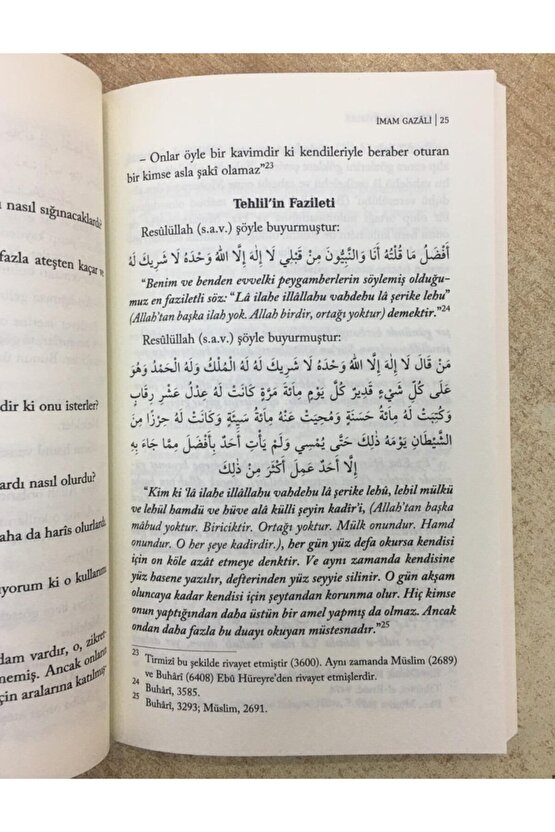 ı nasıl sığınacaklardı?
fazla ateşten kaçar ve
dir ki onu isterler?
ardı nasıl olurdu?
aha da harîs olurlardı,
ıyorum ki o kullarımı
dam vardır, o, zikre-
nemiş. Ancak onların
çin aralarına katılmış
İMAM GAZÂLÎ | 25
– Onlar öyle bir kavimdir ki kendileriyle beraber oturan
bir kimse asla şakî olamaz”23
Tehlil’in Fazileti
Resûlüllah (s.a.v.) şöyle buyurmuştur:
أَفْضَلُ مَا قُلْتُهُ أَنَا وَالنَّبِيُّونَ مِنْ قَبْلِي لَا إِلٰهَ إِلَّا اللّٰهُ وَحْدَهُ لَا شَرِيكَ لَهُ
“Benim ve benden evvelki peygamberlerin söylemiş olduğu-
muz en faziletli söz: “Lâ ilahe illâllahu vahdehu lâ şerike lehu”
(Allah’tan başka ilah yok. Allah birdir, ortağı yoktur) demektir.”24
Resûlüllah (s.a.v.) şöyle buyurmuştur:
مَنْ قَالَ لَا إِلٰهَ إِلَّا اللّٰهُ وَحْدَهُ لَا شَرِيكَ لَهُ لَهُ الْمُلْكُ وَلَهُ الْحَمْدُ وَهُوَ
عَلَى كُلِّ شَيْءٍ قَدِيرٌ كُلَّ يَوْمٍ مِائَةَ مَرَّةٍ كَانَتْ لَهُ عِدْلُ عَشْرِ رِقَابٍ
وَكُتِبَتْ لَهُ مِائَةُ حَسَنَةٍ وَمُحِيَتْ عَنْهُ مِائَةُ سَيِّئَةٍ وَكَانَتْ لَهُ حِرْزًا مِنَ
الشَّيْطَانِ يَوْمَهُ ذٰلِكَ حَتَّى يُمْسِيَ وَلَمْ يَأْتِ أَحَدٌ بِأَفْضَلَ مِمَّا جَاءَ بِهِ
إِلَّا أَحَدٌ عَمِلَ أَكْثَرَ مِنْ ذٰلِكَ
“Kim ki ‘lâ ilahe illâllahu vahdehu lâ şerike lehû, lehül mülkü
ve lehül hamdü ve hüve alâ külli şeyin kadir’i, (Allah’tan başka
mâbud yoktur. Biriciktir. Ortağı yoktur. Mülk onundur. Hamd
onundur. O her şeye kadirdir.), her gün yüz defa okursa kendisi
için on köle azat etmeye denktir. Ve aynı zamanda kendisine
yüz hasene yazılır, defterinden yüz seyyie silinir. O gün akşam
oluncaya kadar kendisi için şeytandan korunma olur. Hiç kimse
onun yaptığından daha üstün bir amel yapmış da olmaz. Ancak
ondan daha fazla bu duayı okuyan müstesnadır.”25
23 Tirmizî bu şekilde rivayet etmiştir (3600). Aynı zamanda Müslim (2689)
ve Buhârî (6408) Ebû Hüreyre’den rivayet etmişlerdir.
24 Buhârî, 3585.
25 Buhârî, 3293; Müslim, 2691.